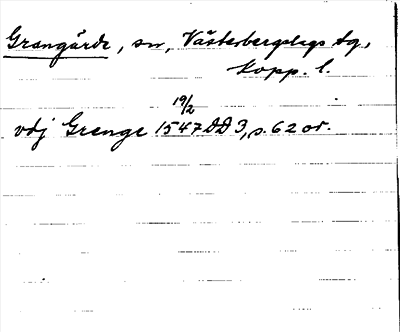 Grangärde, sn, Västerbergslags dg,
Kopp. l.
19/2
vdj Grenge 1547 DD 3, s. 62 or.